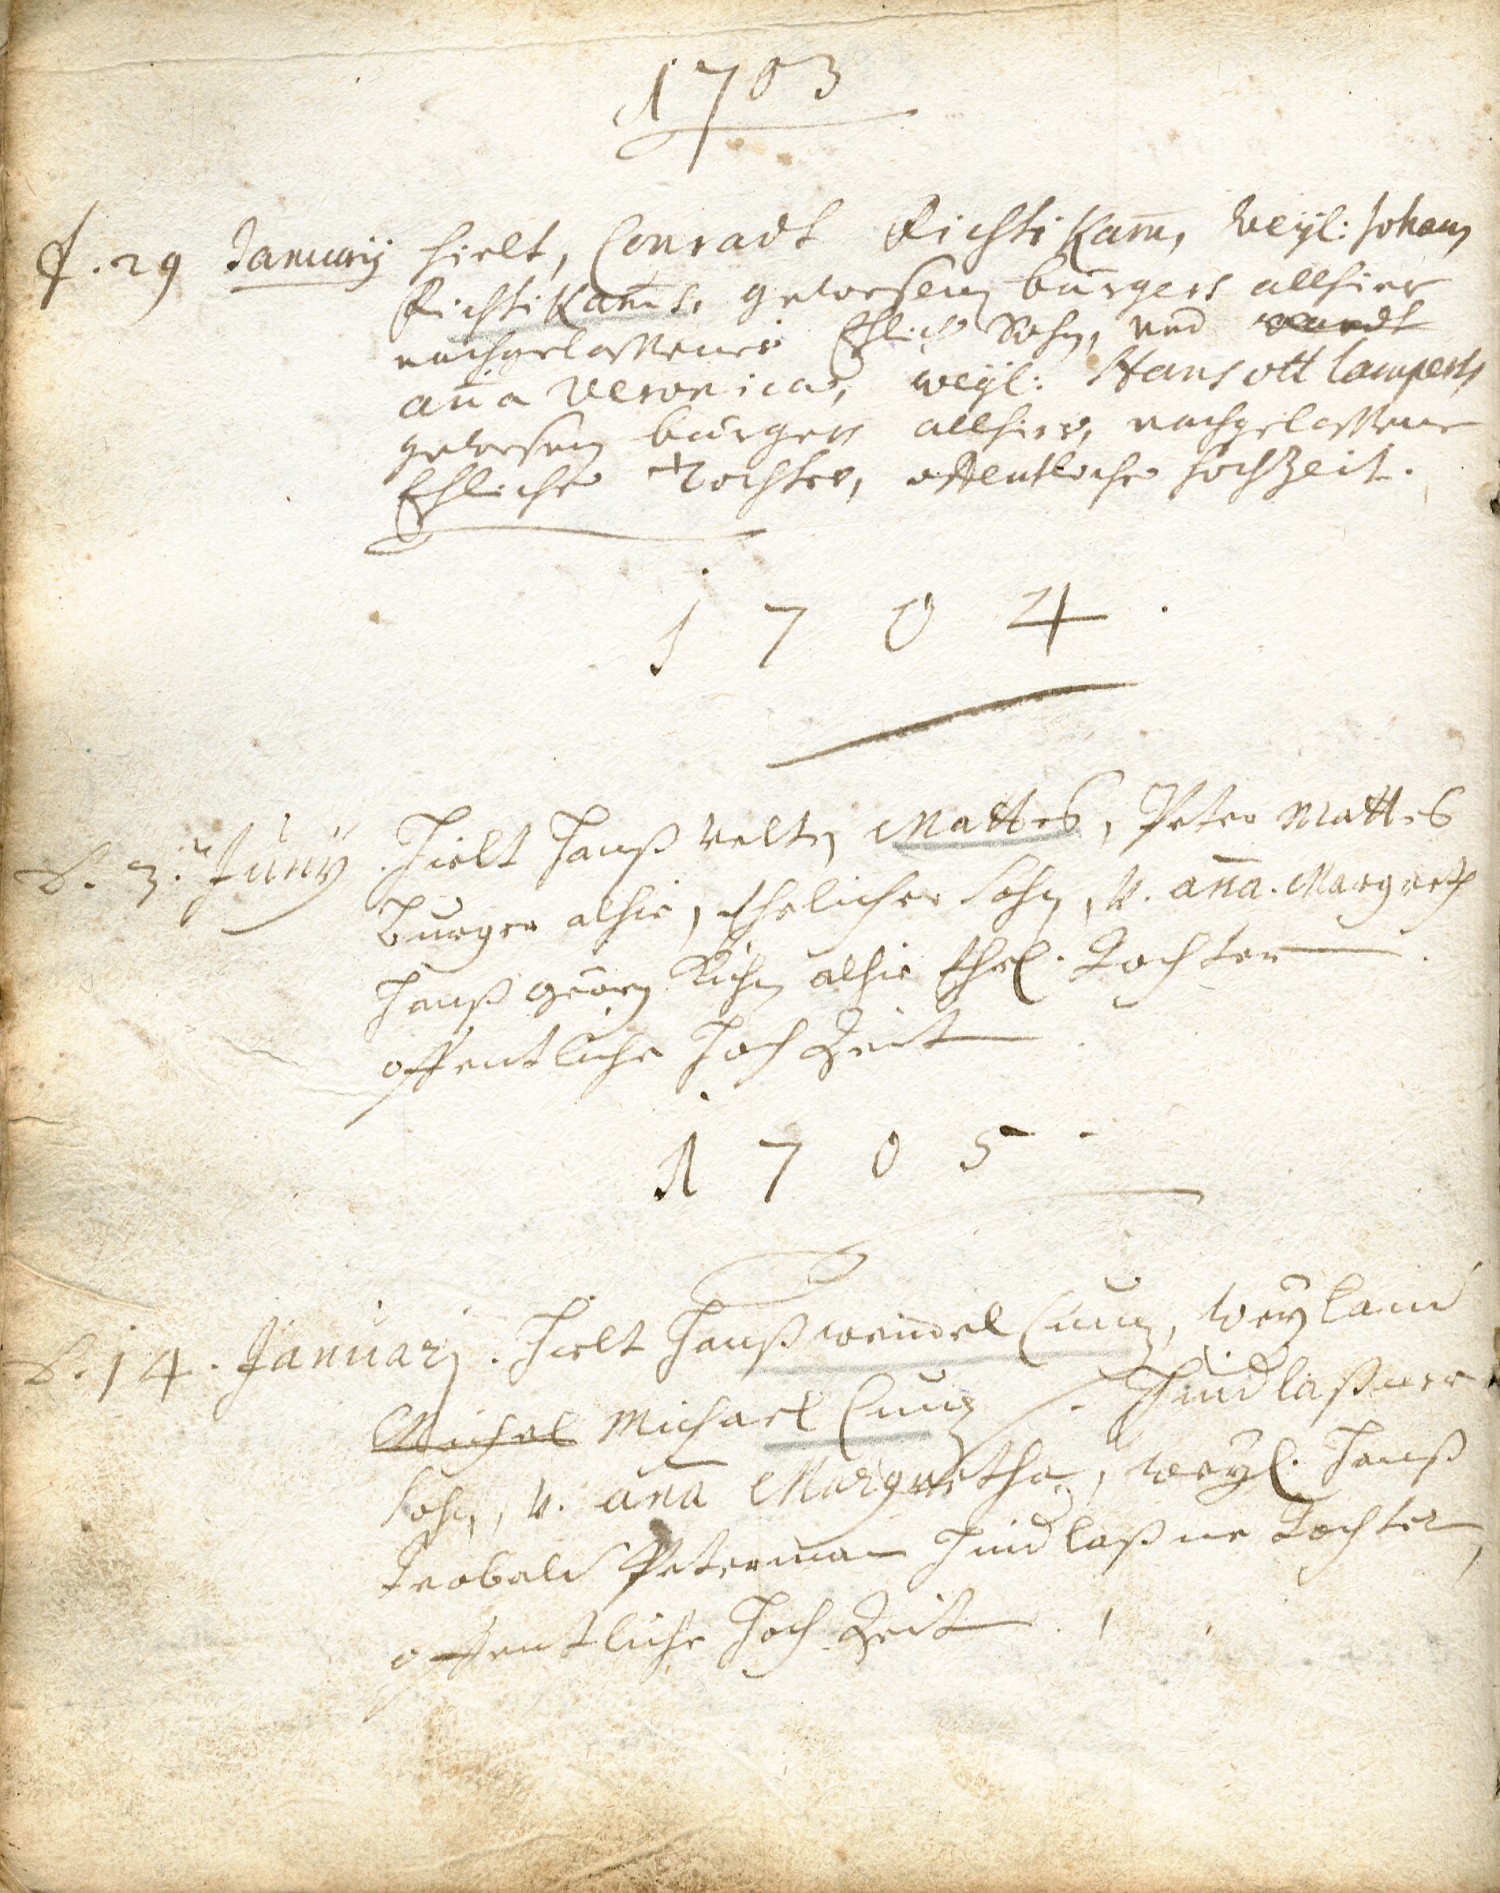 1703
d. 29 Januarij hielt, Conradt Richtikam, Weyl: Johann
Richtikams, gewesenen burgers allhier
nachgelassener Ehlich Sohn, und
anna Veronica, weyl: Hans ott lamperts
gewesen burgers allhier, nachgelassene
Ehliche Tochter, offentliche hochzeit.
1704.
d. 3. Juny. Hielt Hanß Velten Mattes, Peter Mattes
Burger alhie, Ehelicher Sohn, v. aña. Margreth
Hanß Georg alhie Ehel. Tochter.
offentliche HochZeit.
1705.
d. 14. Januarj. Hielt Hanß wendel Cuntz, Weyland
Michel Michael Cuntz. Hindlaßner
Sohn, v. aña Margretha, weyl. Hanß
Teobald Peterman Hindlaßne Tochter,
offentliche HochZeit.